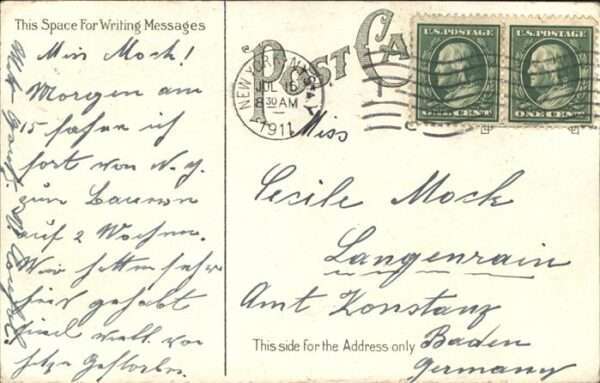 This Space For Writing Messages
Miss Mock!
Morgen am
15 fahre ich
fort von N. Y.
zum
auf 2 Wochen.
Wir hatten sehr
hier gehabt
sind viele von
Hitze gestorben.
POST CARD
NEW YORK, N.Y.
JUL 15
8 30 AM
1911
U.S. POSTAGE
ONE CENT
U.S. POSTAGE
ONE CENT
Miss
Cecile Mock
Langenrain
Amt Konstanz
Baden
Germany
This side for the Address only